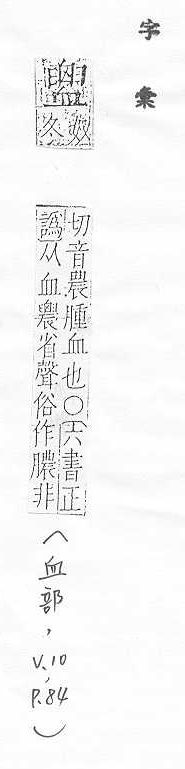 字彙
奴
冬
切音農腫血也○六書正
譌从血農省聲俗作膿非
(血部, V.10, P.84)